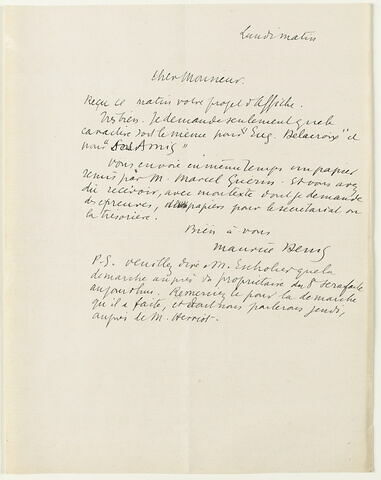 Lundi matin
Cher Monsieur.
Reçu ce matin votre projet d'affiche.
Très bien. Je demande seulement que le
caractère soit le même pour "Eug. Delacroix" et
pour "Ses Amis"
Vous envoie en même temps un papier
remis par M. Marcel Guérin. Et vous avez
dû recevoir, avec mon texte dont je demande
des épreuves, des papiers pour le secrétariat ou
la trésorière.
Bien à vous
Maurice Denis
P.S. Veuillez dire à M. Escholier que la
démarche auprès du propriétaire du 8 sera faite
aujourd'hui. Remerciez le pour la démarche
qu'il a faite, et dont nous parlerons jeudi,
auprès de M. Herriot.